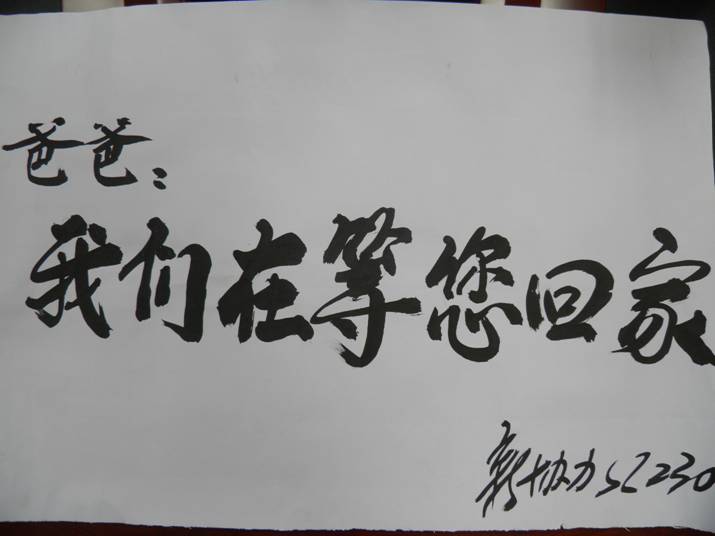 爸爸：
我们在等您回家
新协力SZ230